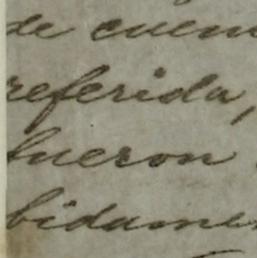 de cuen
referida,
fueron
bidamen